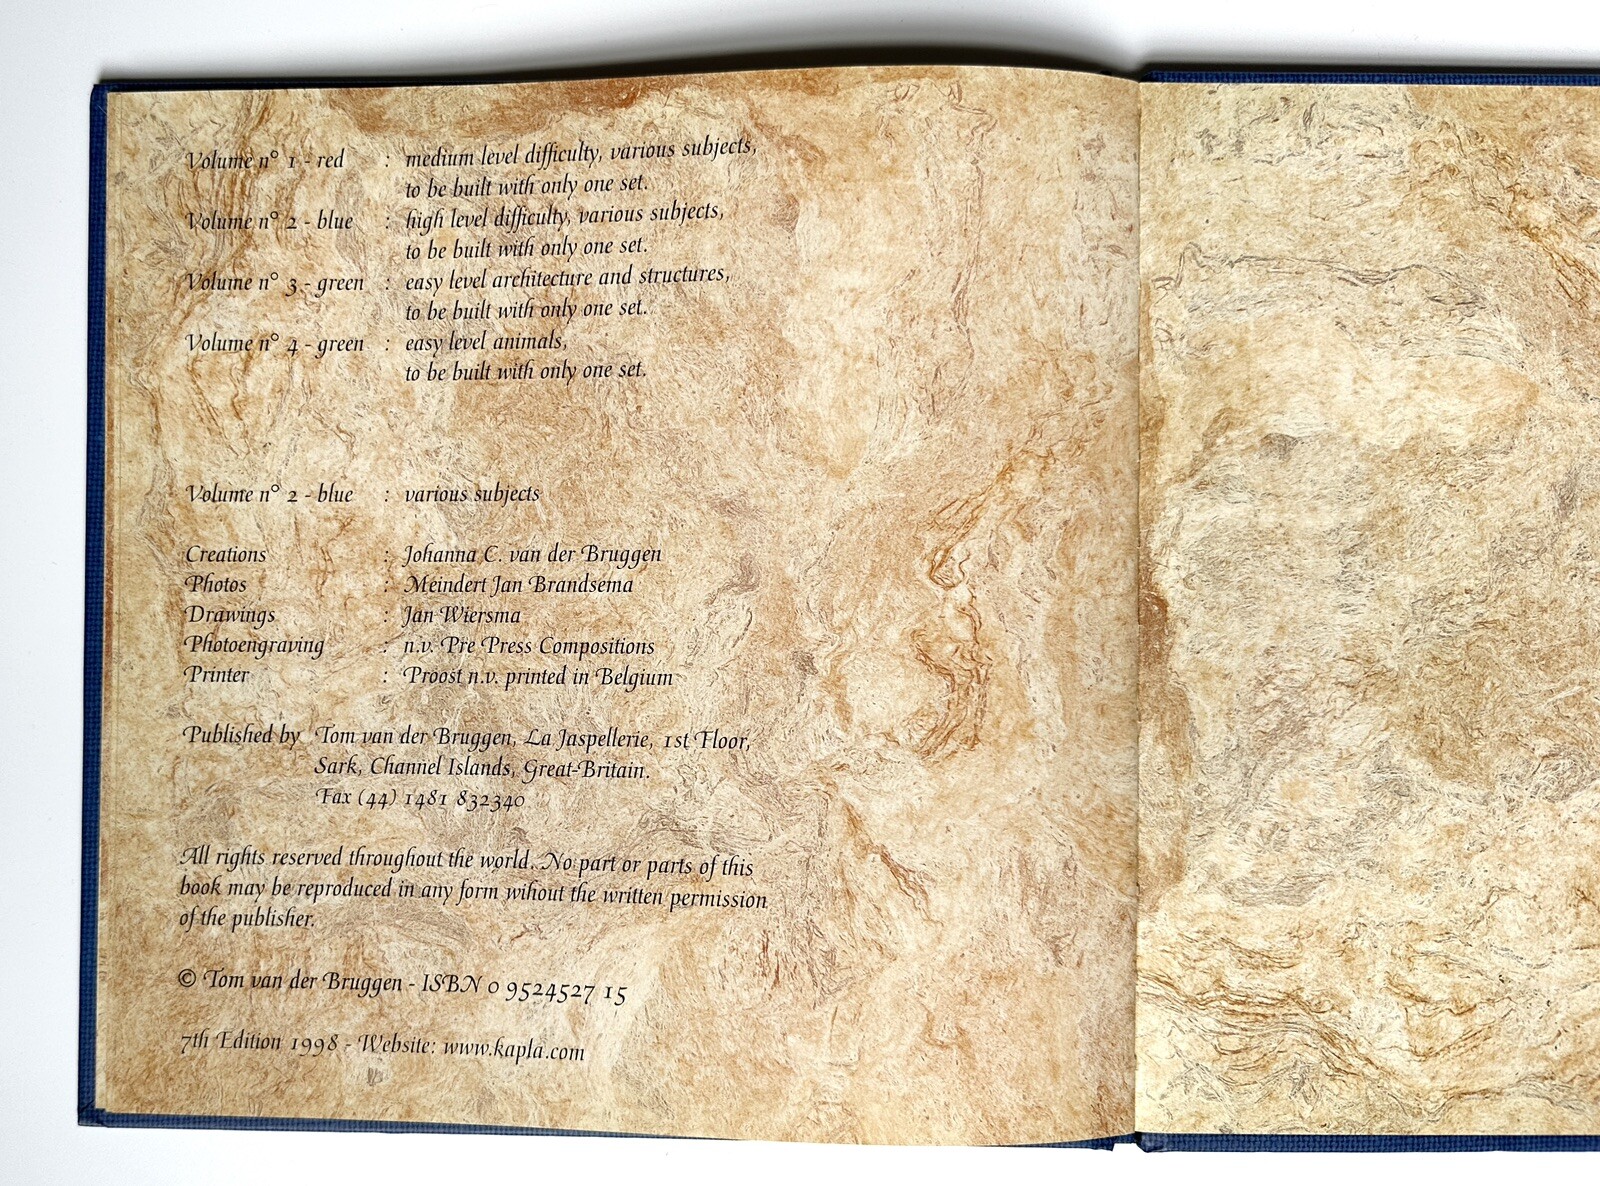 Volume n° 1 - red : medium level difficulty, various subjects,
to be built with only one set.
Volume n° 2 - blue : high level difficulty, various subjects,
to be built with only one set.
Volume n° 3 - green : easy level architecture and structures,
to be built with only one set.
Volume n° 4 - green : easy level animals,
to be built with only one set.
Volume n° 2 - blue : various subjects
Creations : Johanna C. van der Bruggen
Photos : Meindert Jan Brandsema
Drawings : Jan Wiersma
Photoengraving : n.v. Pre Press Compositions
Printer : Proost n.v. printed in Belgium
Published by Tom van der Bruggen, La Jaspellerie, 1st Floor,
Sark, Channel Islands, Great-Britain.
Fax (44) 1481 832340
All rights reserved throughout the world. No part or parts of this
book may be reproduced in any form wihout the written permission
of the publisher.
© Tom van der Bruggen - ISBN 0 9524527 15
7th Edition 1998 - Website: www.kapla.com